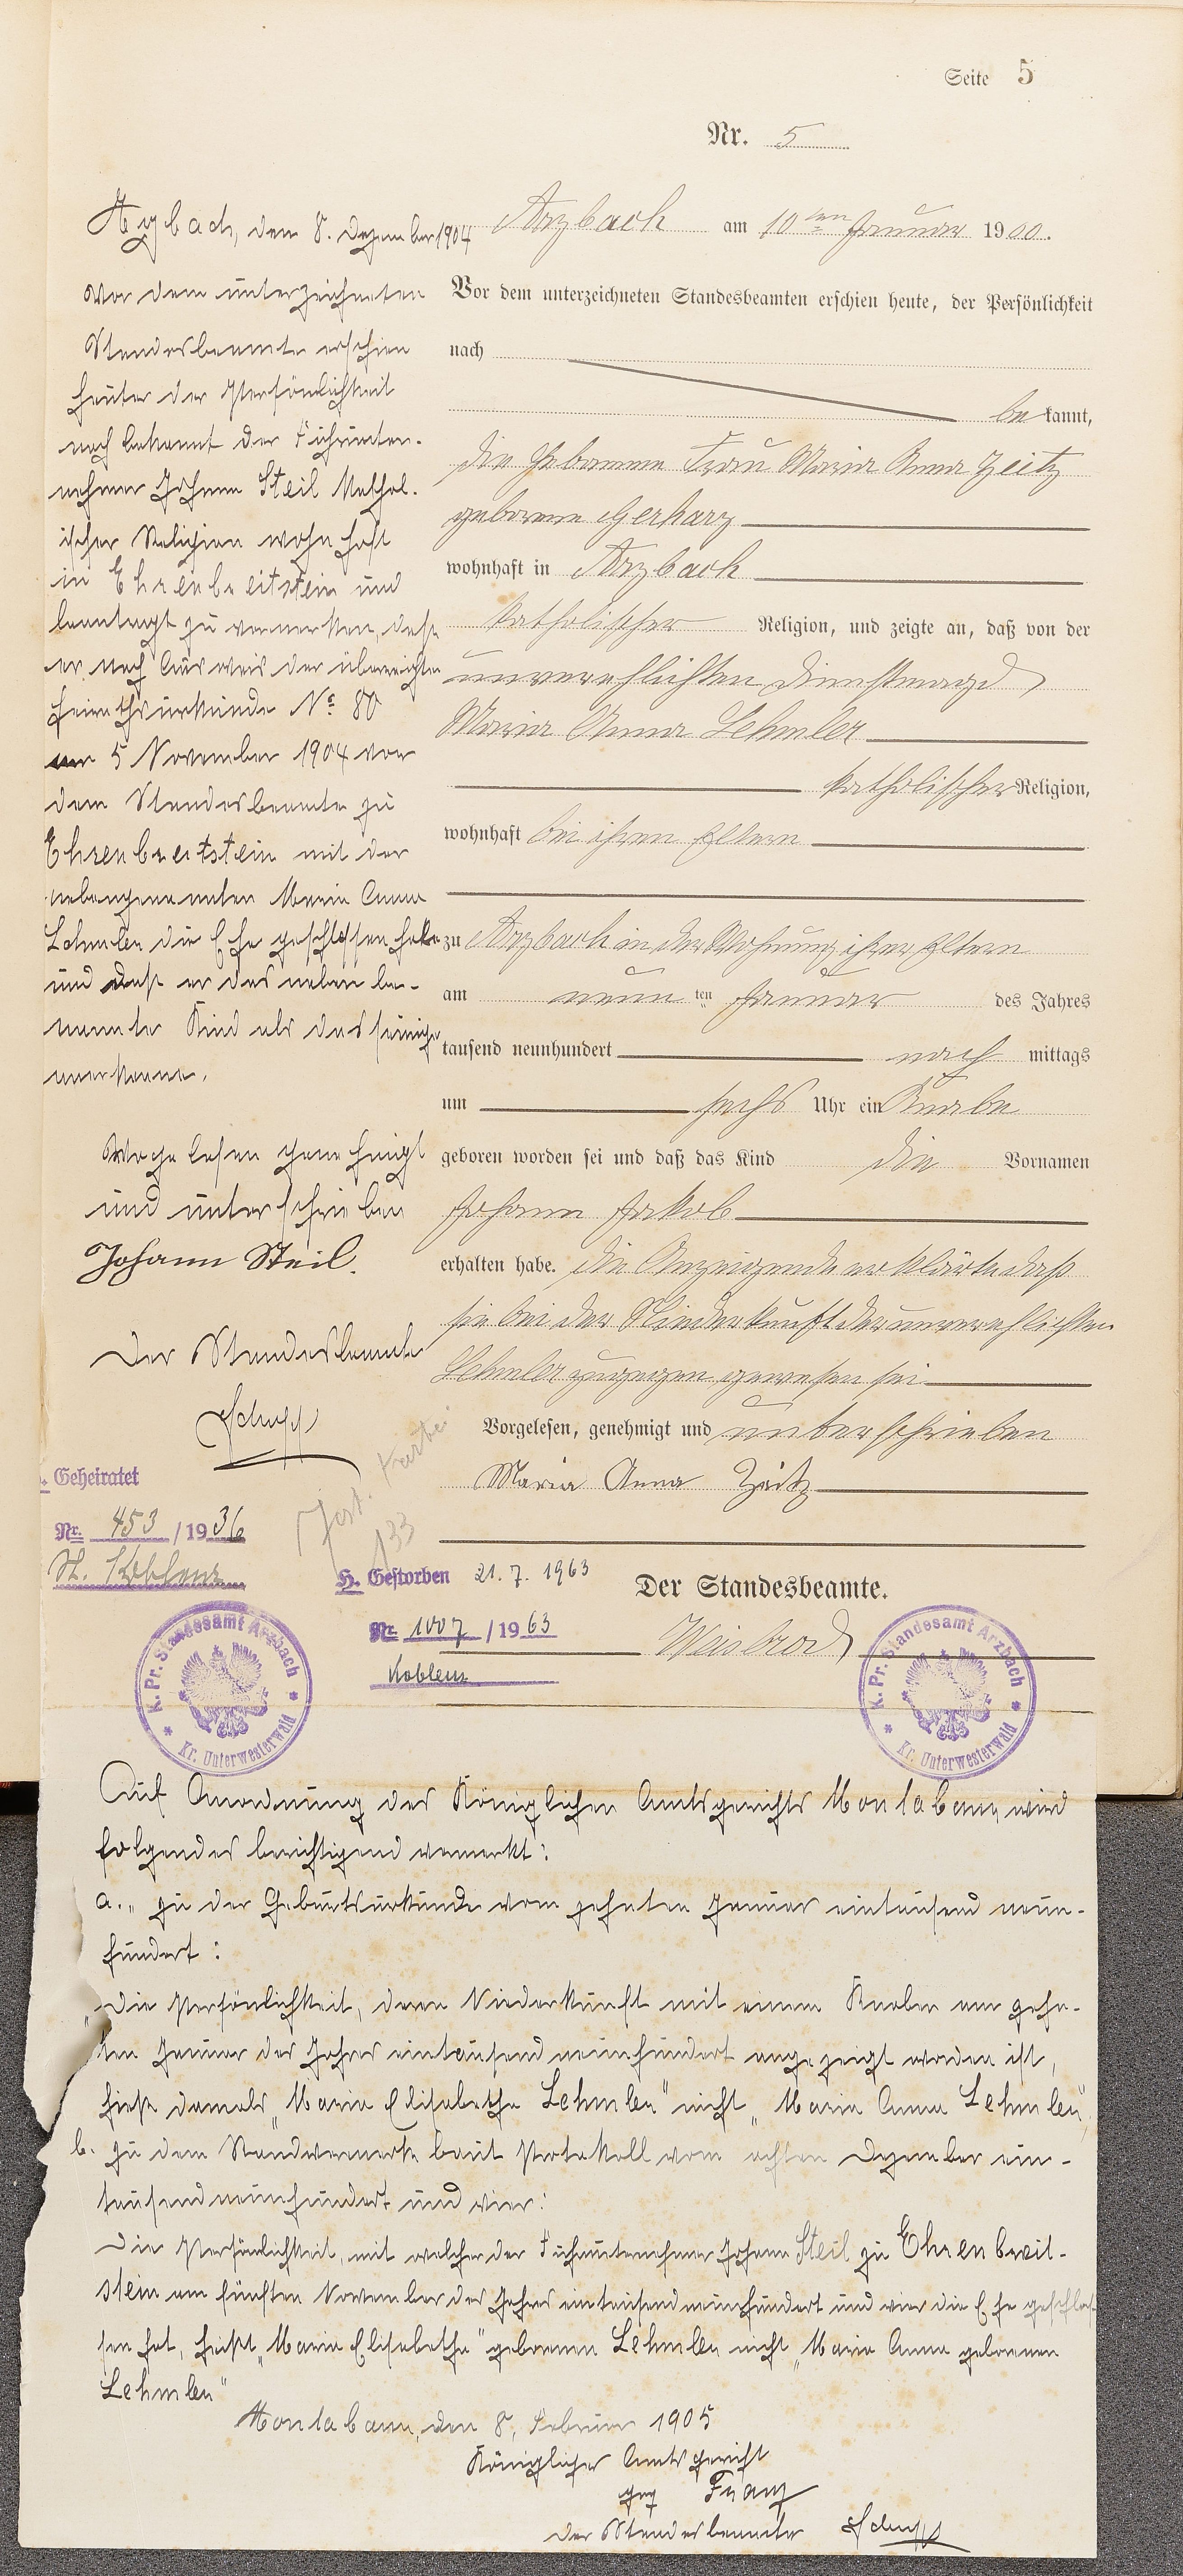 Seite 5
Nr. 5
Arzbach, den 8. Dezember 1904
Vor dem unterzeichneten
Standesbeamte erschien
heute der Persönlichkeit
nach bekannt der Fuhrunter-
nehmer Johann Steil kathol-
ischer Religion wohnhaft
in Ehrenbreitstein und
beantragt zu vermerken, daß
er nach Ausweis der überreichten
Heirathsurkunde No. 80
am 5 November 1904 vor
dem Standesbeamte zu
Ehrenbreitstein mit der
nebengenannten Maria Anna
Lehmler die Ehe geschlossen habe
und daß er das neben be-
nannte Kind als das seinige
anerkenne.
Vorgelesen genehmigt
und unterschrieben
Johann Steil.
Der Standesbeamte
Schupp
Arzbach am 10ten Januar 1900.
Vor dem unterzeichneten Standesbeamten erschien heute, der Persönlichkeit
nach
bekannt,
die Hebamme Frau Maria Anna Zeitz
geborene Gerharz
wohnhaft in Arzbach
katholischer Religion, und zeigte an, daß von der
unverehlichten Dienstmagd
Maria Anna Lehmler
katholischer Religion,
wohnhaft bei ihren Eltern
zu Arzbach in der Wohnung ihrer Eltern
am neunten Januar des Jahres
tausend neunhundert nach mittags
um sechs Uhr ein Knabe
geboren worden sei und daß das Kind die Vornamen
Johann Jakob
erhalten habe. Die Anzeigende erklärte daß
sie bei der Niederkunft der unverehlichten
Lehmler zugegen gewesen sei
Vorgelesen, genehmigt und unterschrieben
Maria Anna Zeitz
Der Standesbeamte.
Weisbrod
Geheiratet
Nr. 453 / 1936
St. Koblenz
133
H. Gestorben 21.7.1963
Nr. 1007 / 1963
Koblenz
K. Pr. Standesamt Arzbach
* Kr. Unterwesterwald *
K. Pr. Standesamt Arzbach
* Kr. Unterwesterwald *
Auf Anordnung des Königlichen Amtsgerichts Montabaur, wird
folgendes berichtigend vermerkt:
a. „zu der Geburtsurkunde vom zehnten Januar eintausend neun-
hundert:
Die Persönlichkeit, deren Niederkunft mit einem Knaben am zehn-
ten Januar des Jahres eintausendneunhundert angezeigt worden ist,
hieß damals „Maria Elisabetha Lehmler" nicht „Maria Anna Lehmler",
b. zu dem Randvermerk laut Protokoll vom achten Dezember ein-
tausendneunhundert und vier:
Die Persönlichkeit, mit welcher der Fuhrunternehmer Johann Steil zu Ehrenbreit-
stein am fünften November des Jahres eintausendneunhundert und vier die Ehe geschlos-
sen hat, heißt „Maria Elisabetha" geborenen Lehmler nicht „Maria Anna geborenen
Lehmler"
Montabaur, den 8. Februar 1905
Königliches Amtsgericht
gez Franz
Der Standesbeamte Schupp